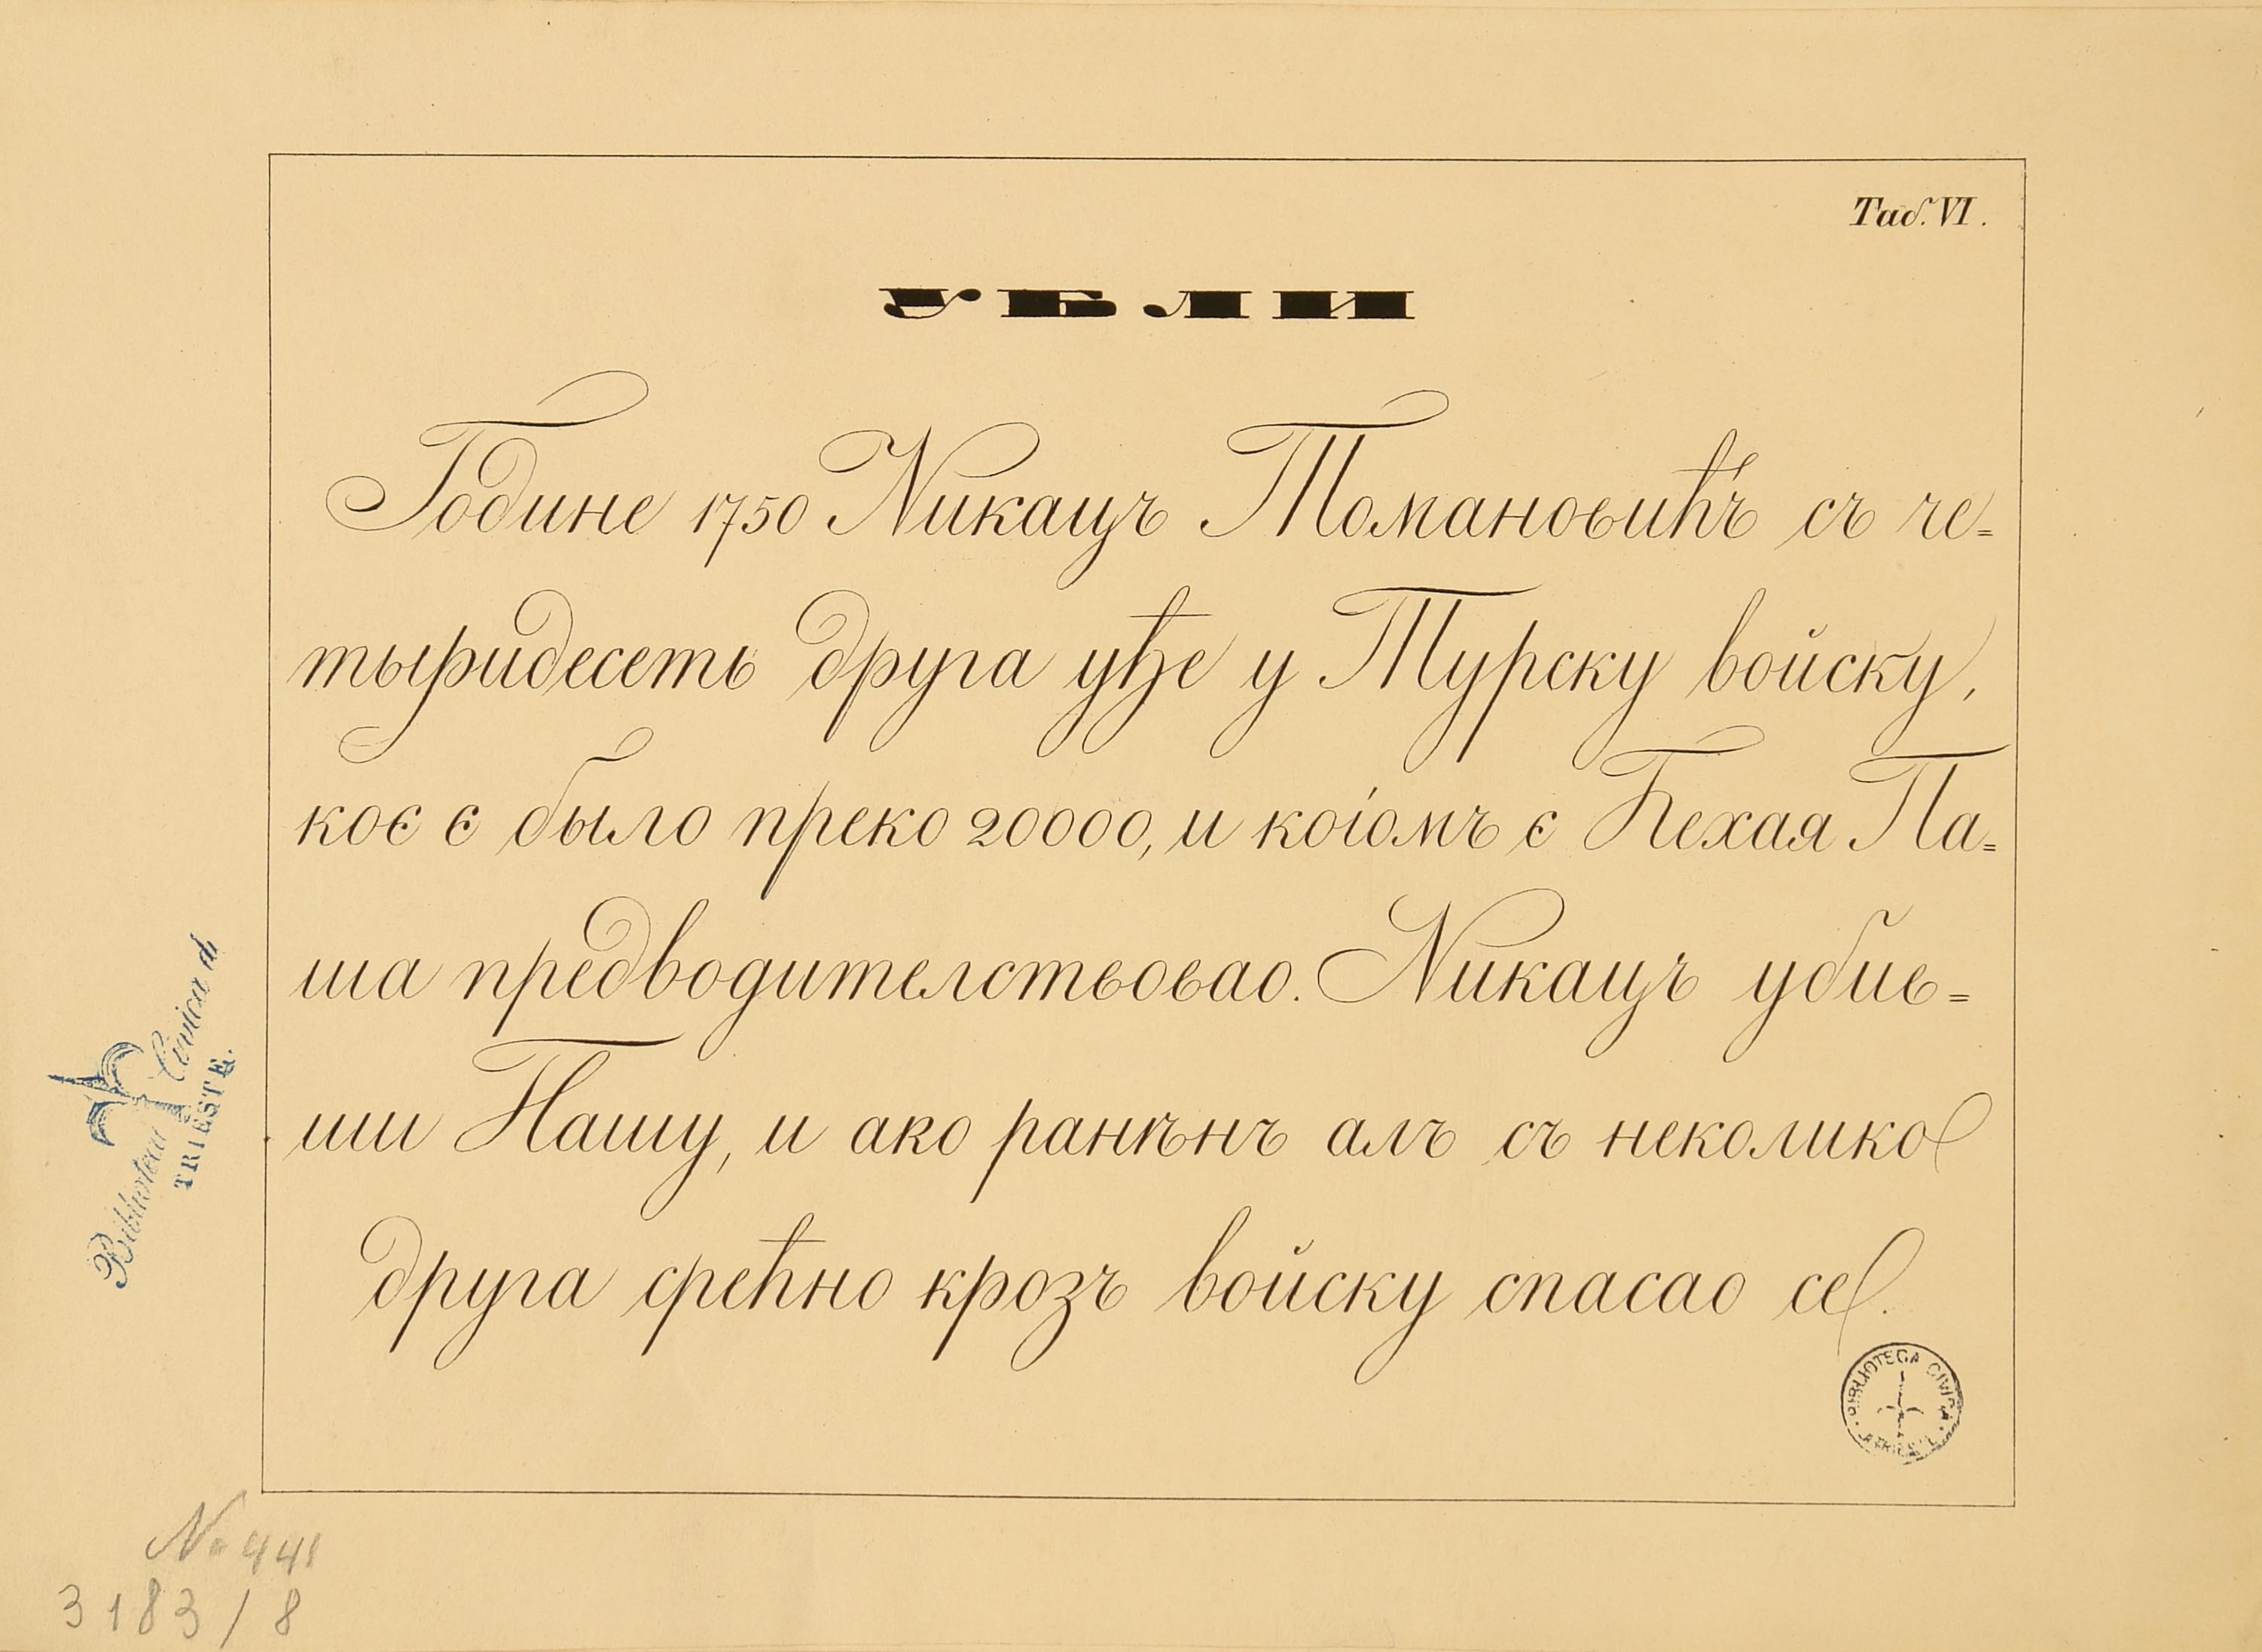 Таб. VI.
УБЛИ
Године 1750 Никацъ Томановићъ съ че=
тыридесеть друга уђе у Турску войску,
коє є было преко 20000, и коіомъ є Бехая Па=
ша предводителствовао. Никацъ убив=
ши Пашу, и ако ранѣнъ алъ съ неколико
друга срећно крозъ войску спасао се.
Biblioteca Civica di
TRIESTE.
BIBLIOTECA CIVICA
No 441
3183/8